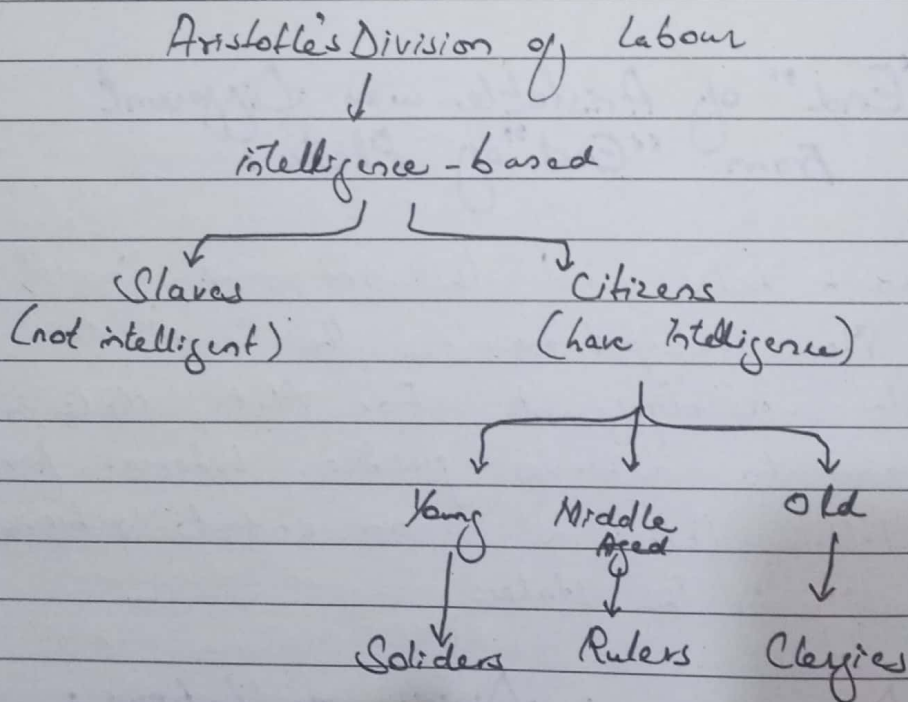 Aristotle's Division of Labour
intelligence-based
Slaves Citizens
(not intelligent) (have Intelligence)
Young Middle Aged Old
Soliders Rulers Clergies